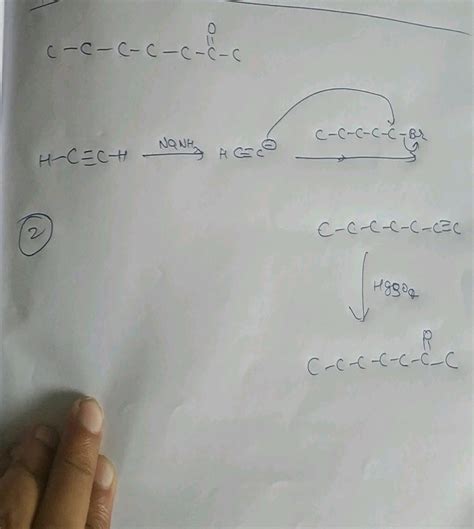 O
C-C-C-C-C-C-C
H-C≡C-H NaNH₂ H C≡C⊖ C-C-C-C-C-Br
2
C-C-C-C-C-C≡C
HgSO₄
C-C-C-C-C-C-C